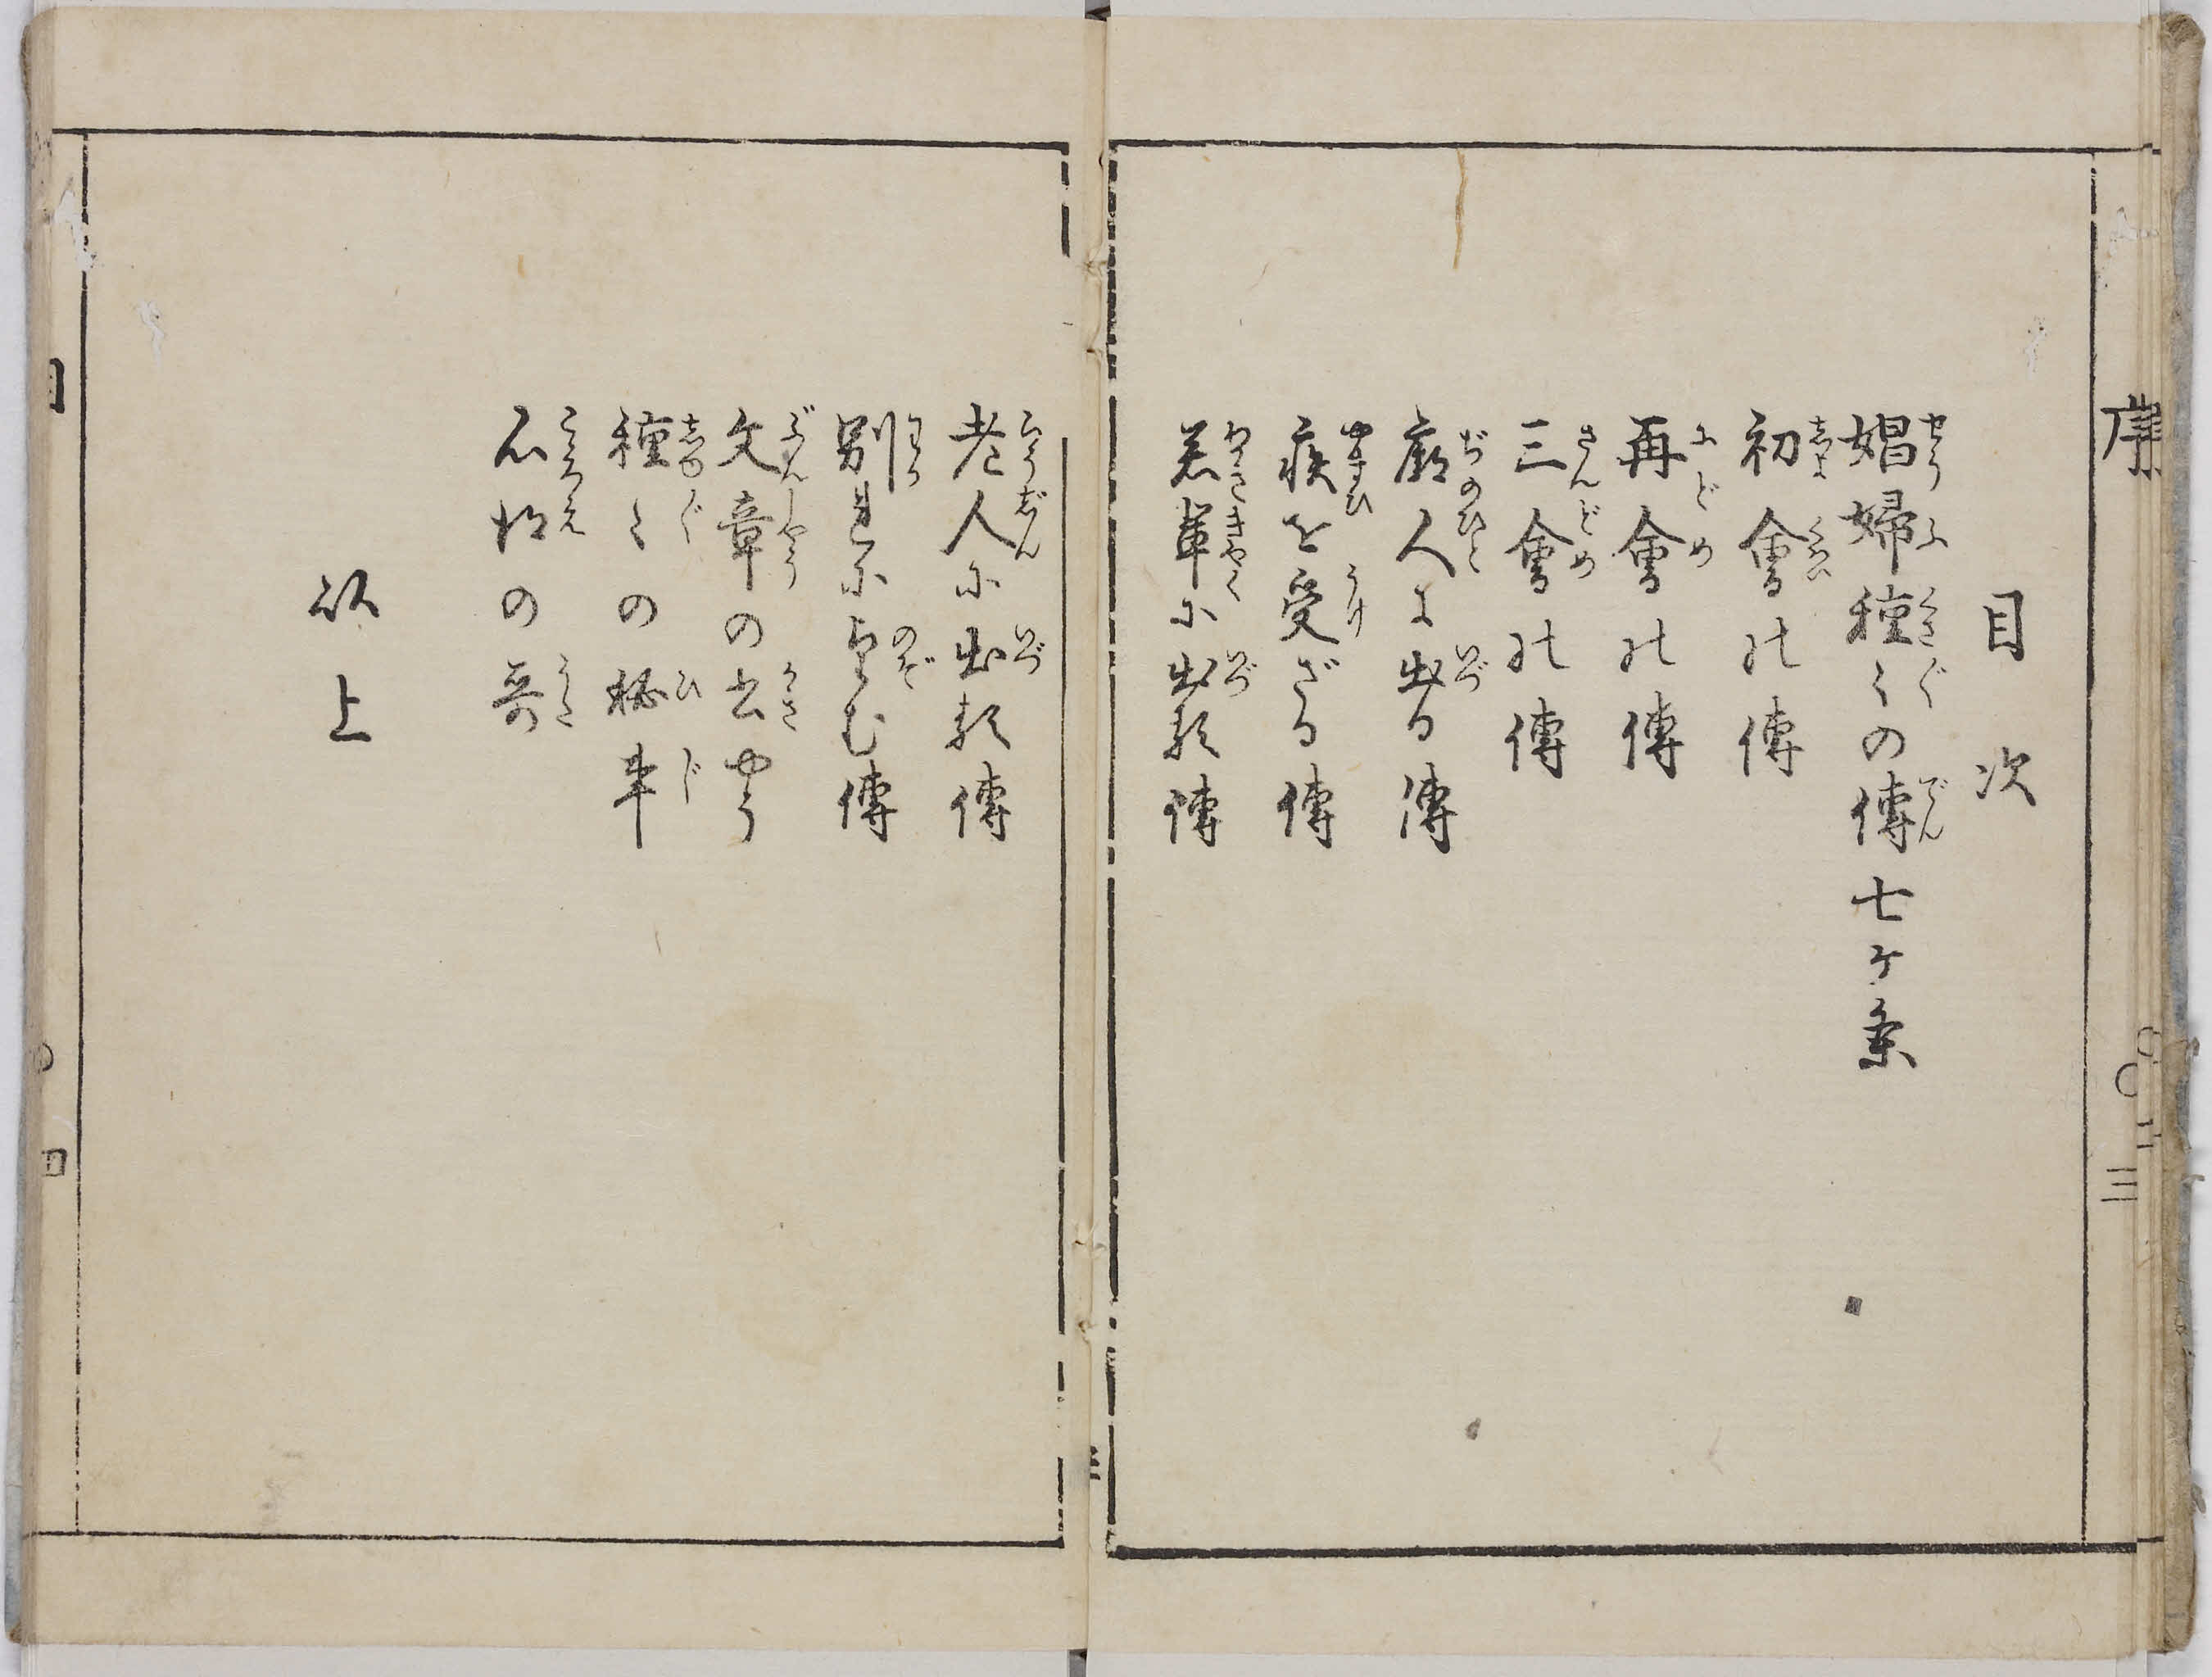 序
三
目次
娼婦種〳〵の傳七ケ条
初會の傳
再會の傳
三會の傳
廓人に出る傳
疾を受ざる傳
若輩に出る傳
老人に出る傳
別れに望む傳
文章の書やう
種〻の秘事
心得の哥
以上